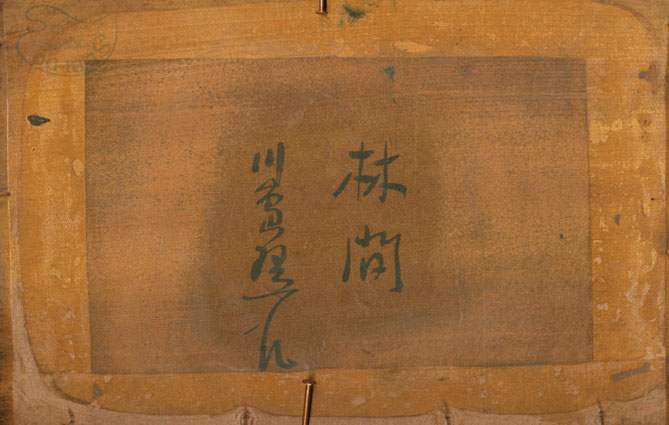 林間
川島理一郎